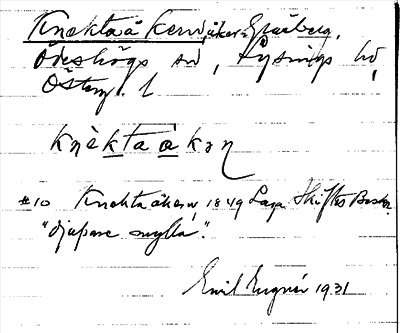 Knektaåkern, åker, Gråberg,
Ödeshögs sn, Lysings hd,
Österg. l
knèktaåkɘɳ
#10 Knektaåkern 1849 Laga Skiftes Beskr.
"djupare mylla".
Emil Engnér 1931